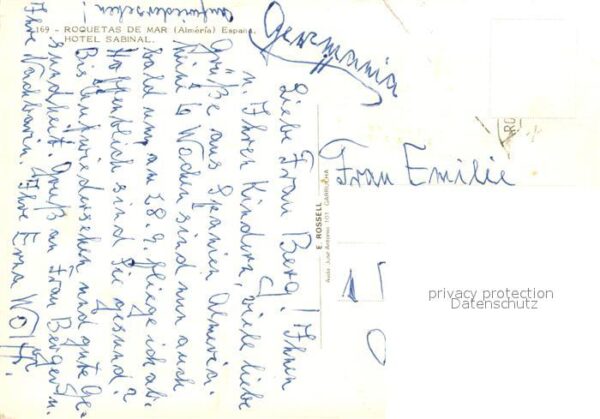 169 - ROQUETAS DE MAR (Almería) España.
HOTEL SABINAL.
Germania
Liebe Frau Berg! Ihnen
u. Ihren Kindern, viele liebe
Grüße aus Spanien Almeria.
6 Wochen sind nun auch
bald um, am 28.9. fliege ich ab.
Hoffentlich sind Sie gesund?
Bis Aufwiedersehen und gute Ge-
sundheit. Gruß an Frau Berger u.
Ihre Nachbarin. Ihre Erna Wolff.
Aufwiedersehen!
E. ROSSELL
Avda. José Antonio 101 GARRUCHA
Frau Emilie
1
privacy protection
Datenschutz